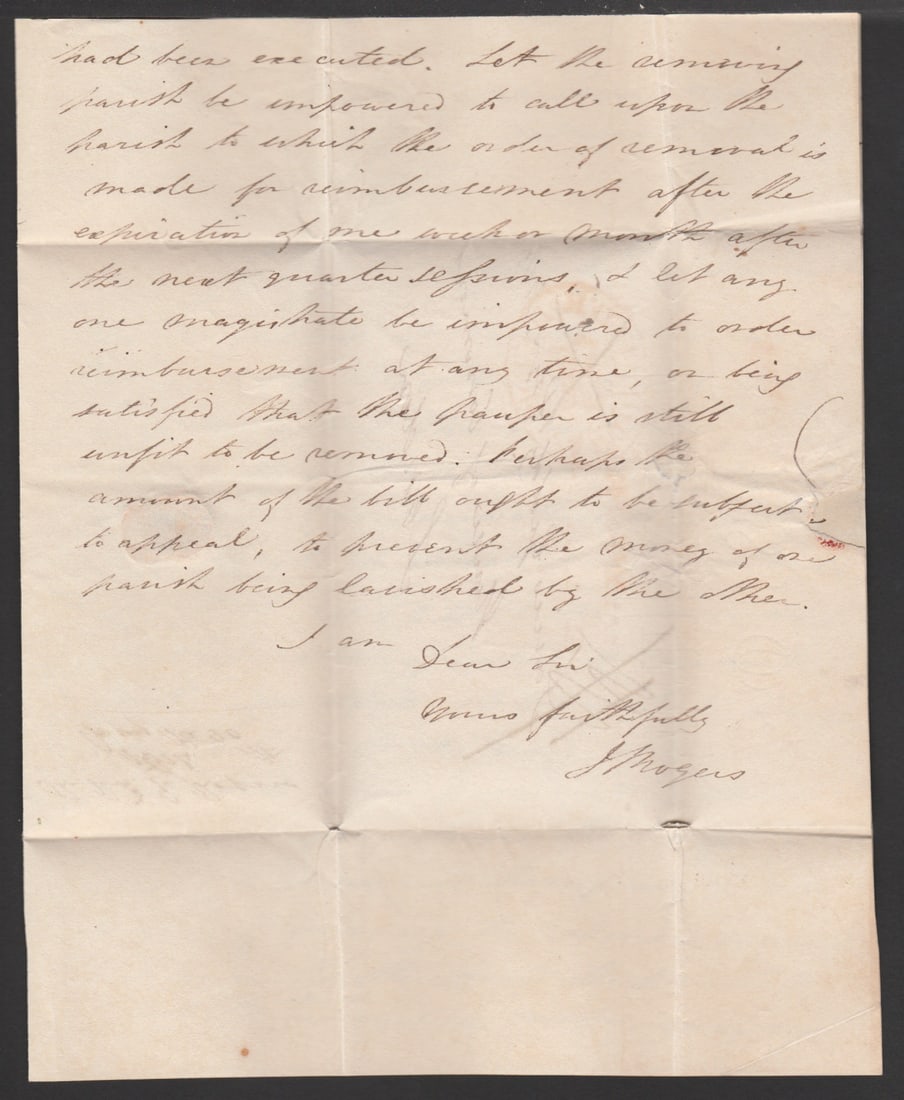 had been executed. Let the removing
parish be impowered to call upon the
parish to which the order of removal is
made for reimbursement after the
expiration of one week or month after
the next quarter sessions, & let any
one magistrate be impowered to order
reimbursement at any time, on being
satisfied that the pauper is still
unfit to be removed. Perhaps the
amount of the bill ought to be subject
to appeal, to prevent the money of one
parish being lavished by the other.
I am
Dear Sir
Yours faithfully
J Rogers